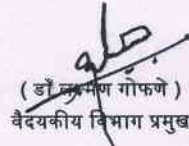 ( डॉ लक्ष्मण गोफणे )
वैदयकीय विभाग प्रमुख